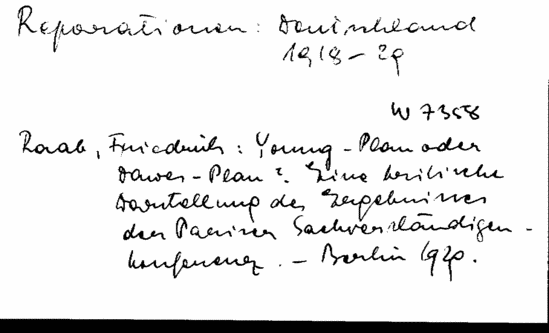 Reparationen: Deutschland
1918-29
W 7358
Raab, Friedrich: Young-Plan oder
Dawes-Plan? Eine kritische
Darstellung der Ergebnisse
der Pariser Sachverständigen-
konferenz. - Berlin 1929.